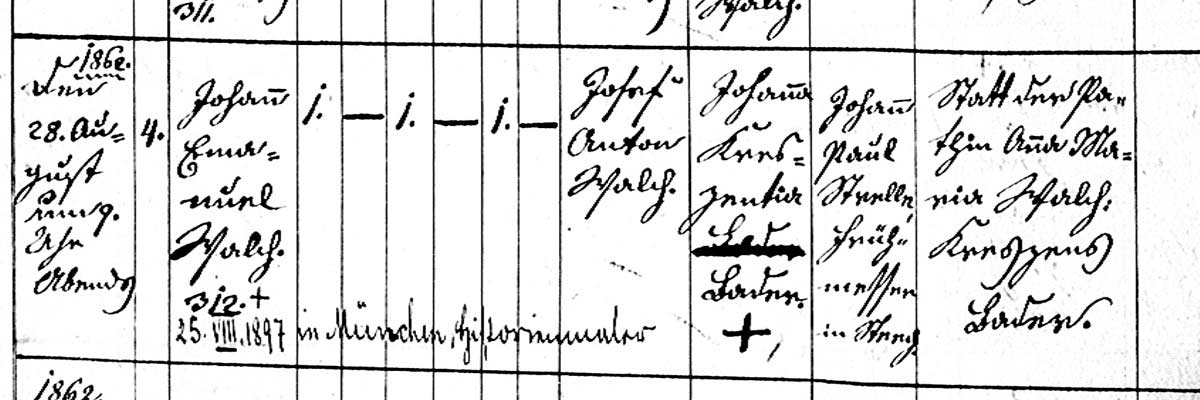 311.
Walch.
1862.
Den
28. Au=
gust
um 9.
Uhr
Abends
4.
Johañ
Ema=
nuel
Walch.
312. +
25. VIII. 1897 in München, Historienmaler
1. — 1. — 1. —
Josef
Anton
Walch.
Johaña
Kres=
zentia
Bader.
Johañ
Paul
Strelle,
Früh=
messer
in Steeg
Statt der Pa=
thin Aña Ma=
ria Walch:
Kreszens
Bader.
1862